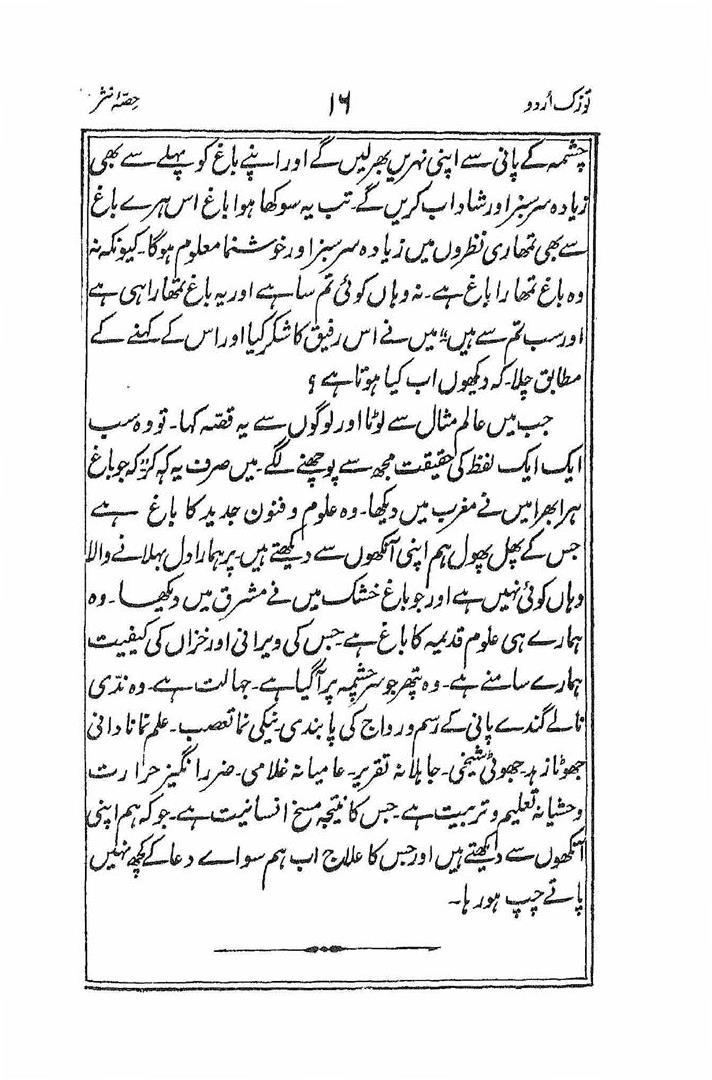 توزک اُردو ۱۶ حِصّۂ نثر
چشمہ کے پانی سے اپنی نہریں بھر لیں گے اور اپنے باغ کو پہلے سے بھی
زیادہ سرسبز اور شاداب کریں گے۔ تب یہ سوکھا ہوا باغ اس ہرے باغ
سے بھی تمھاری نظروں میں زیادہ سرسبز اور خوشنما معلوم ہوگا۔ کیونکہ نہ
وہ باغ تمھارا باغ ہے۔ نہ وہاں کوئی تم سا ہے اور یہ باغ تمھارا ہی ہے
اور سب تم سے ہیں“ میں نے اس رفیق کا شکر کیا اور اس کے کہنے کے
مطابق چلا۔ کہ دیکھوں اب کیا ہوتا ہے؟
جب میں عالم مثال سے لوٹا اور لوگوں سے یہ قصّہ کہا۔ تو وہ سب
ایک ایک لفظ کی حقیقت مجھ سے پوچھنے لگے۔ میں صرف یہ کہہ کر کہ جو باغ
ہرا بھرا میں نے مغرب میں دیکھا۔ وہ علوم و فنون جدید کا باغ ہے
جس کے پھل پھول ہم اپنی آنکھوں سے دیکھتے ہیں۔ پر ہمارا دل بہلانے والا
وہاں کوئی نہیں ہے اور جو باغ خشک میں نے مشرق میں دیکھا۔ وہ
ہمارے ہی علوم قدیمہ کا باغ ہے۔ جس کی ویرانی اور خزاں کی کیفیت
ہمارے سامنے ہے۔ وہ پتھر جو سرچشمہ پر آگیا ہے۔ جہالت ہے۔ وہ ندّی
نالے گندے پانی کے رسم و رواج کی پابندی۔ نیکی نما تعصب۔ علم نما نادانی
جھوٹا زہد۔ جھوٹی شیخی۔ جاہلانہ تقریر۔ عامیانہ غلامی۔ ضرر انگیز حرارت
وحشیانہ تعلیم و تربیت ہے۔ جس کا نتیجہ مسخ انسانیت ہے۔ جو کہ ہم اپنی
آنکھوں سے دیکھتے ہیں اور جس کا علاج اب ہم سواے دعا کے کچھ نہیں
پاتے چپ ہو رہا۔